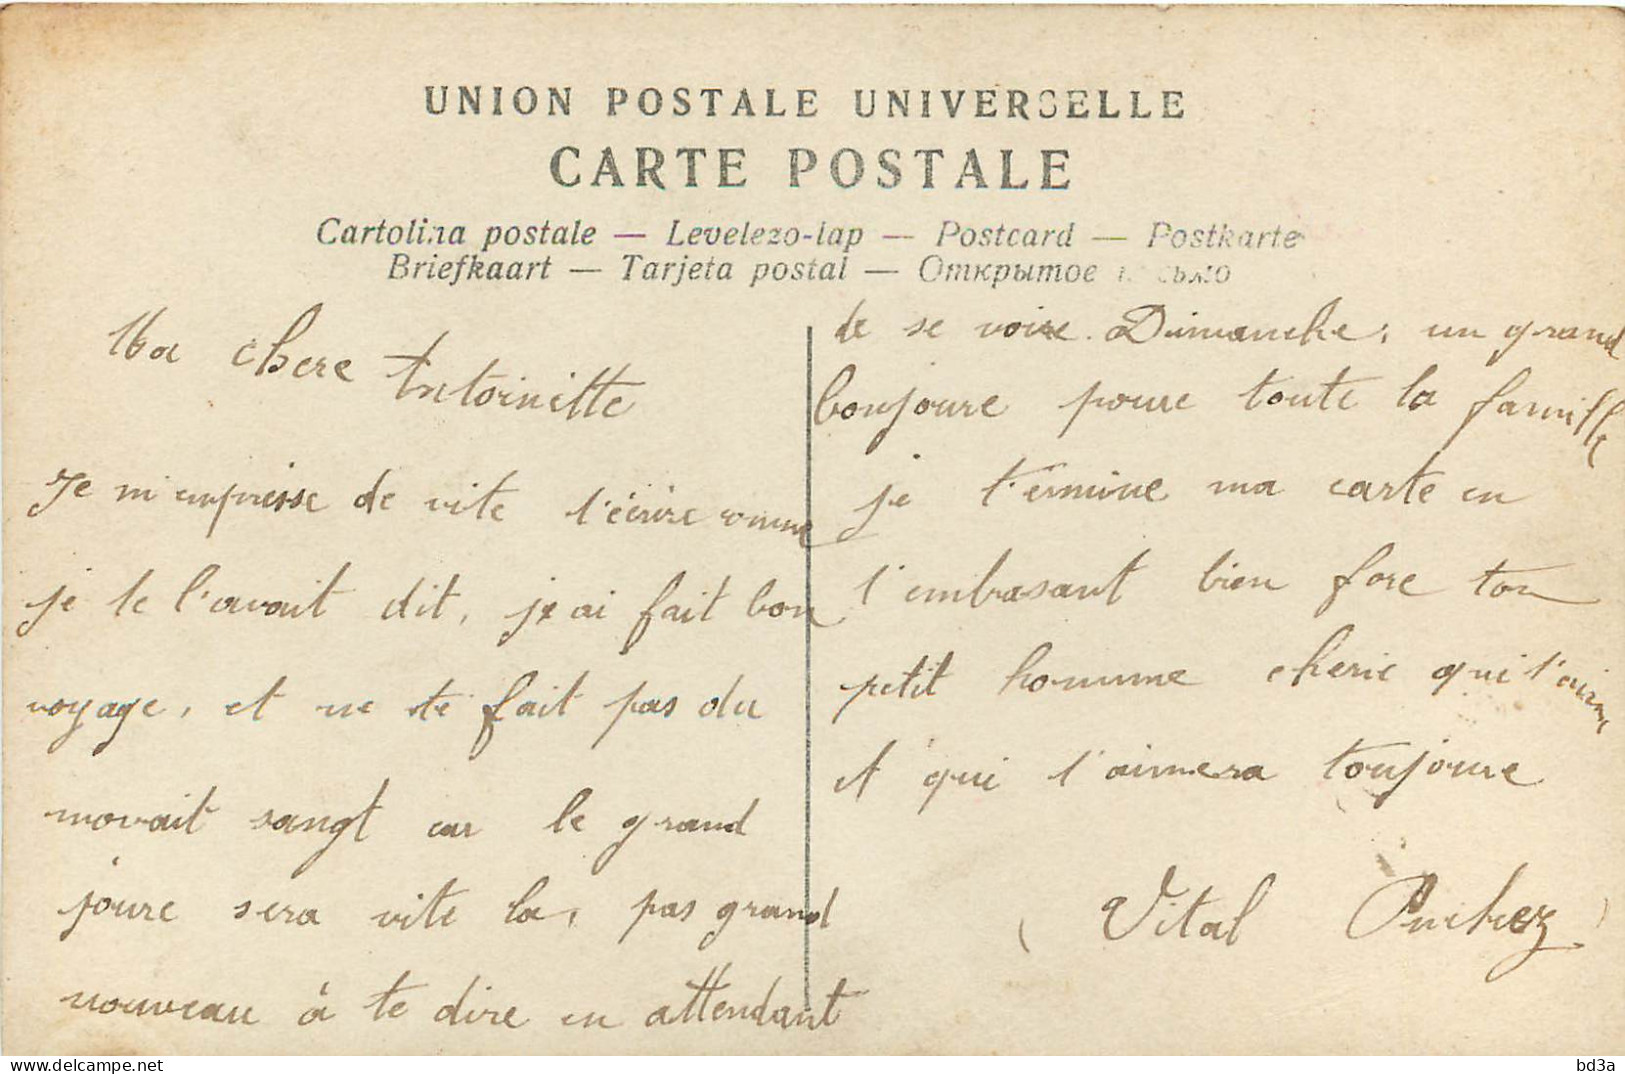 UNION POSTALE UNIVERSELLE
CARTE POSTALE
Cartolina postale — Levelezo-lap — Postcard — Postkarte
Briefkaart — Tarjeta postal — Открытое письмо
Ma chere Antoinette
Je m'empresse de vite t'écrire comme
je te l'avait dit, je ai fait bon
voyage, et ne te fait pas du
movait sangt car le grand
joure sera vite la, pas grand
nouveau à te dire en attendant
de se voire Dimanche, un grand
bonjoure poure toute la famille
je termine ma carte en
t'embrasant bien fore ton
petit homme cherie qui t'aime
et qui t'aimera toujoure
Vital
bd3a